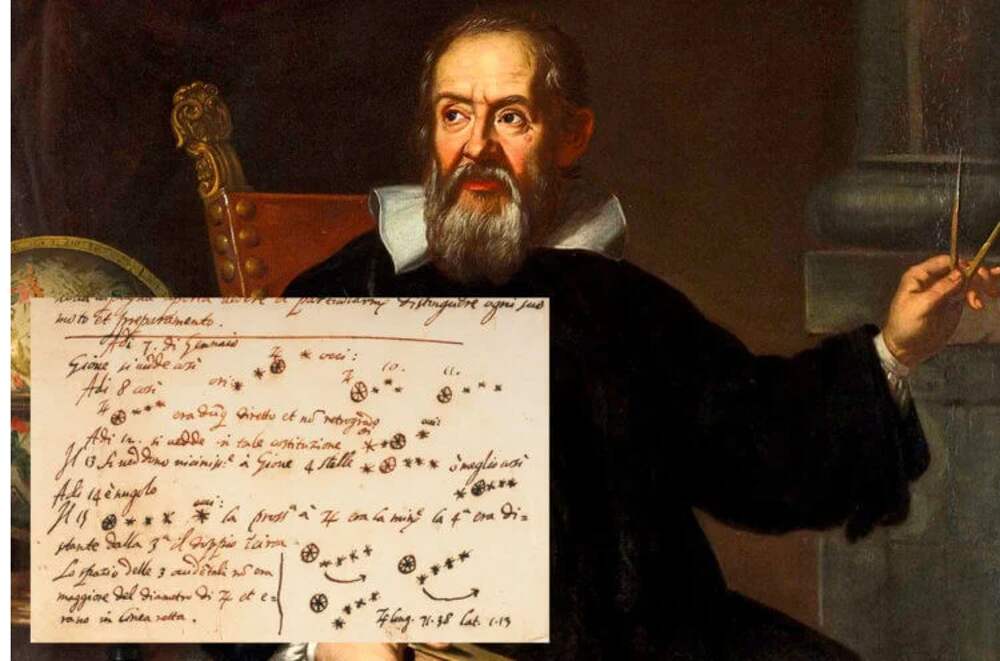 moto et preparamento.
Adi 7. di Gennaio
Gione si vede così
occ:
Adi 8 così
ori:
10.
11.
era dūq diretto et nō retrogrado
Adi 12. si vedde in tale costituzione
ori
occi
Il 13 si veddono vicinissᵉ à Gione 4 stelle
ò meglio così
Adi 14 è nugolo
Il 15
occi:
la prossᵃ à ♃ era la minᵉ la 4ᵃ era di=
stante dalla 3ᵃ il doppio
Lo spazio delle 3 occidētali nō era
maggiore del diametro di ♃ et e-
rano in linea retta.
♃ long. 71.38 lat. 1.13